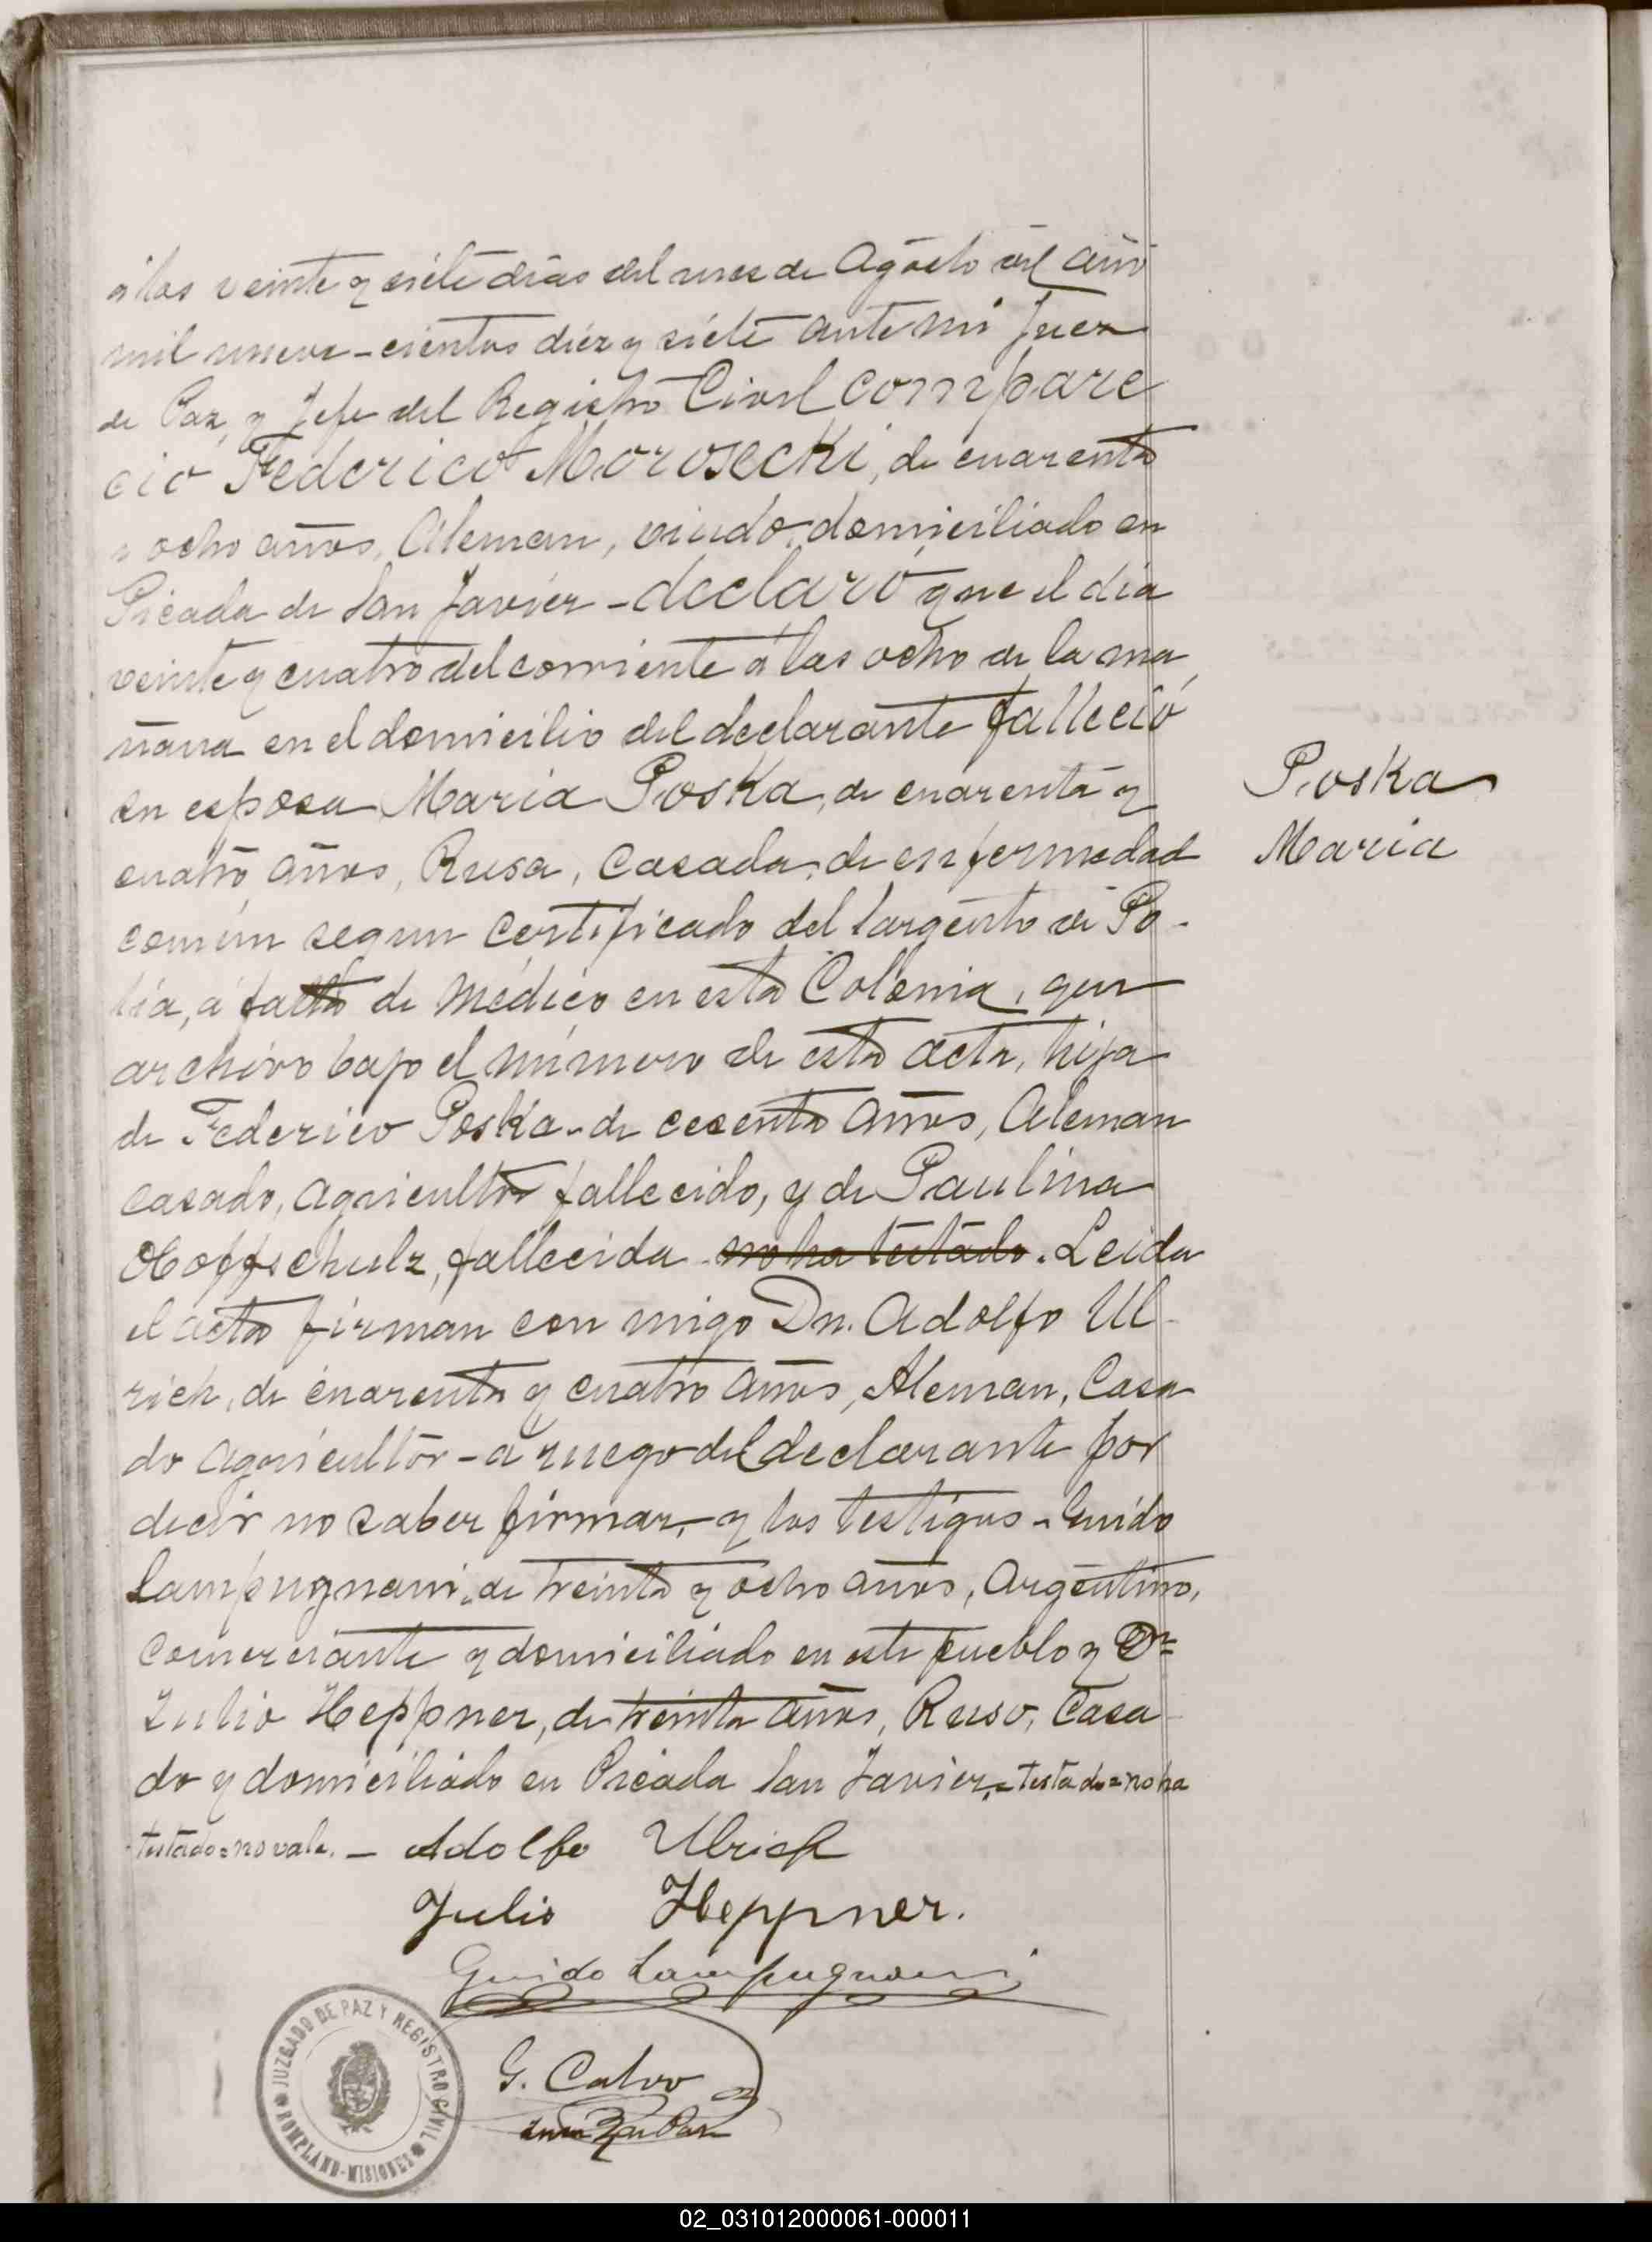 á los veinte y siete dias del mes de Agosto del año
mil nueve-cientos diez y siete ante mi Juez
de Paz, y Jefe del Registro Civil compare
ció Federico Morosecki, de cuarenta
y ocho años, Aleman, viudo, domiciliado en
Picada de San Javier - declaró que el dia
veinte y cuatro del corriente á las ocho de la ma
ñana en el domicilio del declarante falleció
su esposa Maria Poska, de cuarenta y
cuatro años, Rusa, Casada, de enfermedad
común segun certificado del Sargento de Po-
licia, á falta de Médico en esta Colonia, que
archivo bajo el número de esta acta, hija
de Federico Poska - de cecenta años, Aleman
casado, agricultor fallecido, y de Paulina
Hoffschulz, fallecida no ha testado. Leida
el acta firman con migo Dn. Adolfo Ul-
rich, de cuarenta y cuatro años, Aleman, Casa
do agricultor - a ruego del declarante por
decir no saber firmar, y los testigos - Guido
Lampugnani, de treinta y ocho años, Argentino,
Comerciante y domiciliado en este pueblo y Dn
Julio Heppner, de treinta años, Ruso, Casa
do y domiciliado en Picada San Javier. - testado = no ha
testado = no vale. - Adolfo Ulrich
Julio Heppner.
Guido Lampugnani
G. Calvo
Juez de Paz
Poska
Maria
JUZGADO DE PAZ Y REGISTRO CIVIL
BOMPLAND-MISIONES
02_031012000061-000011